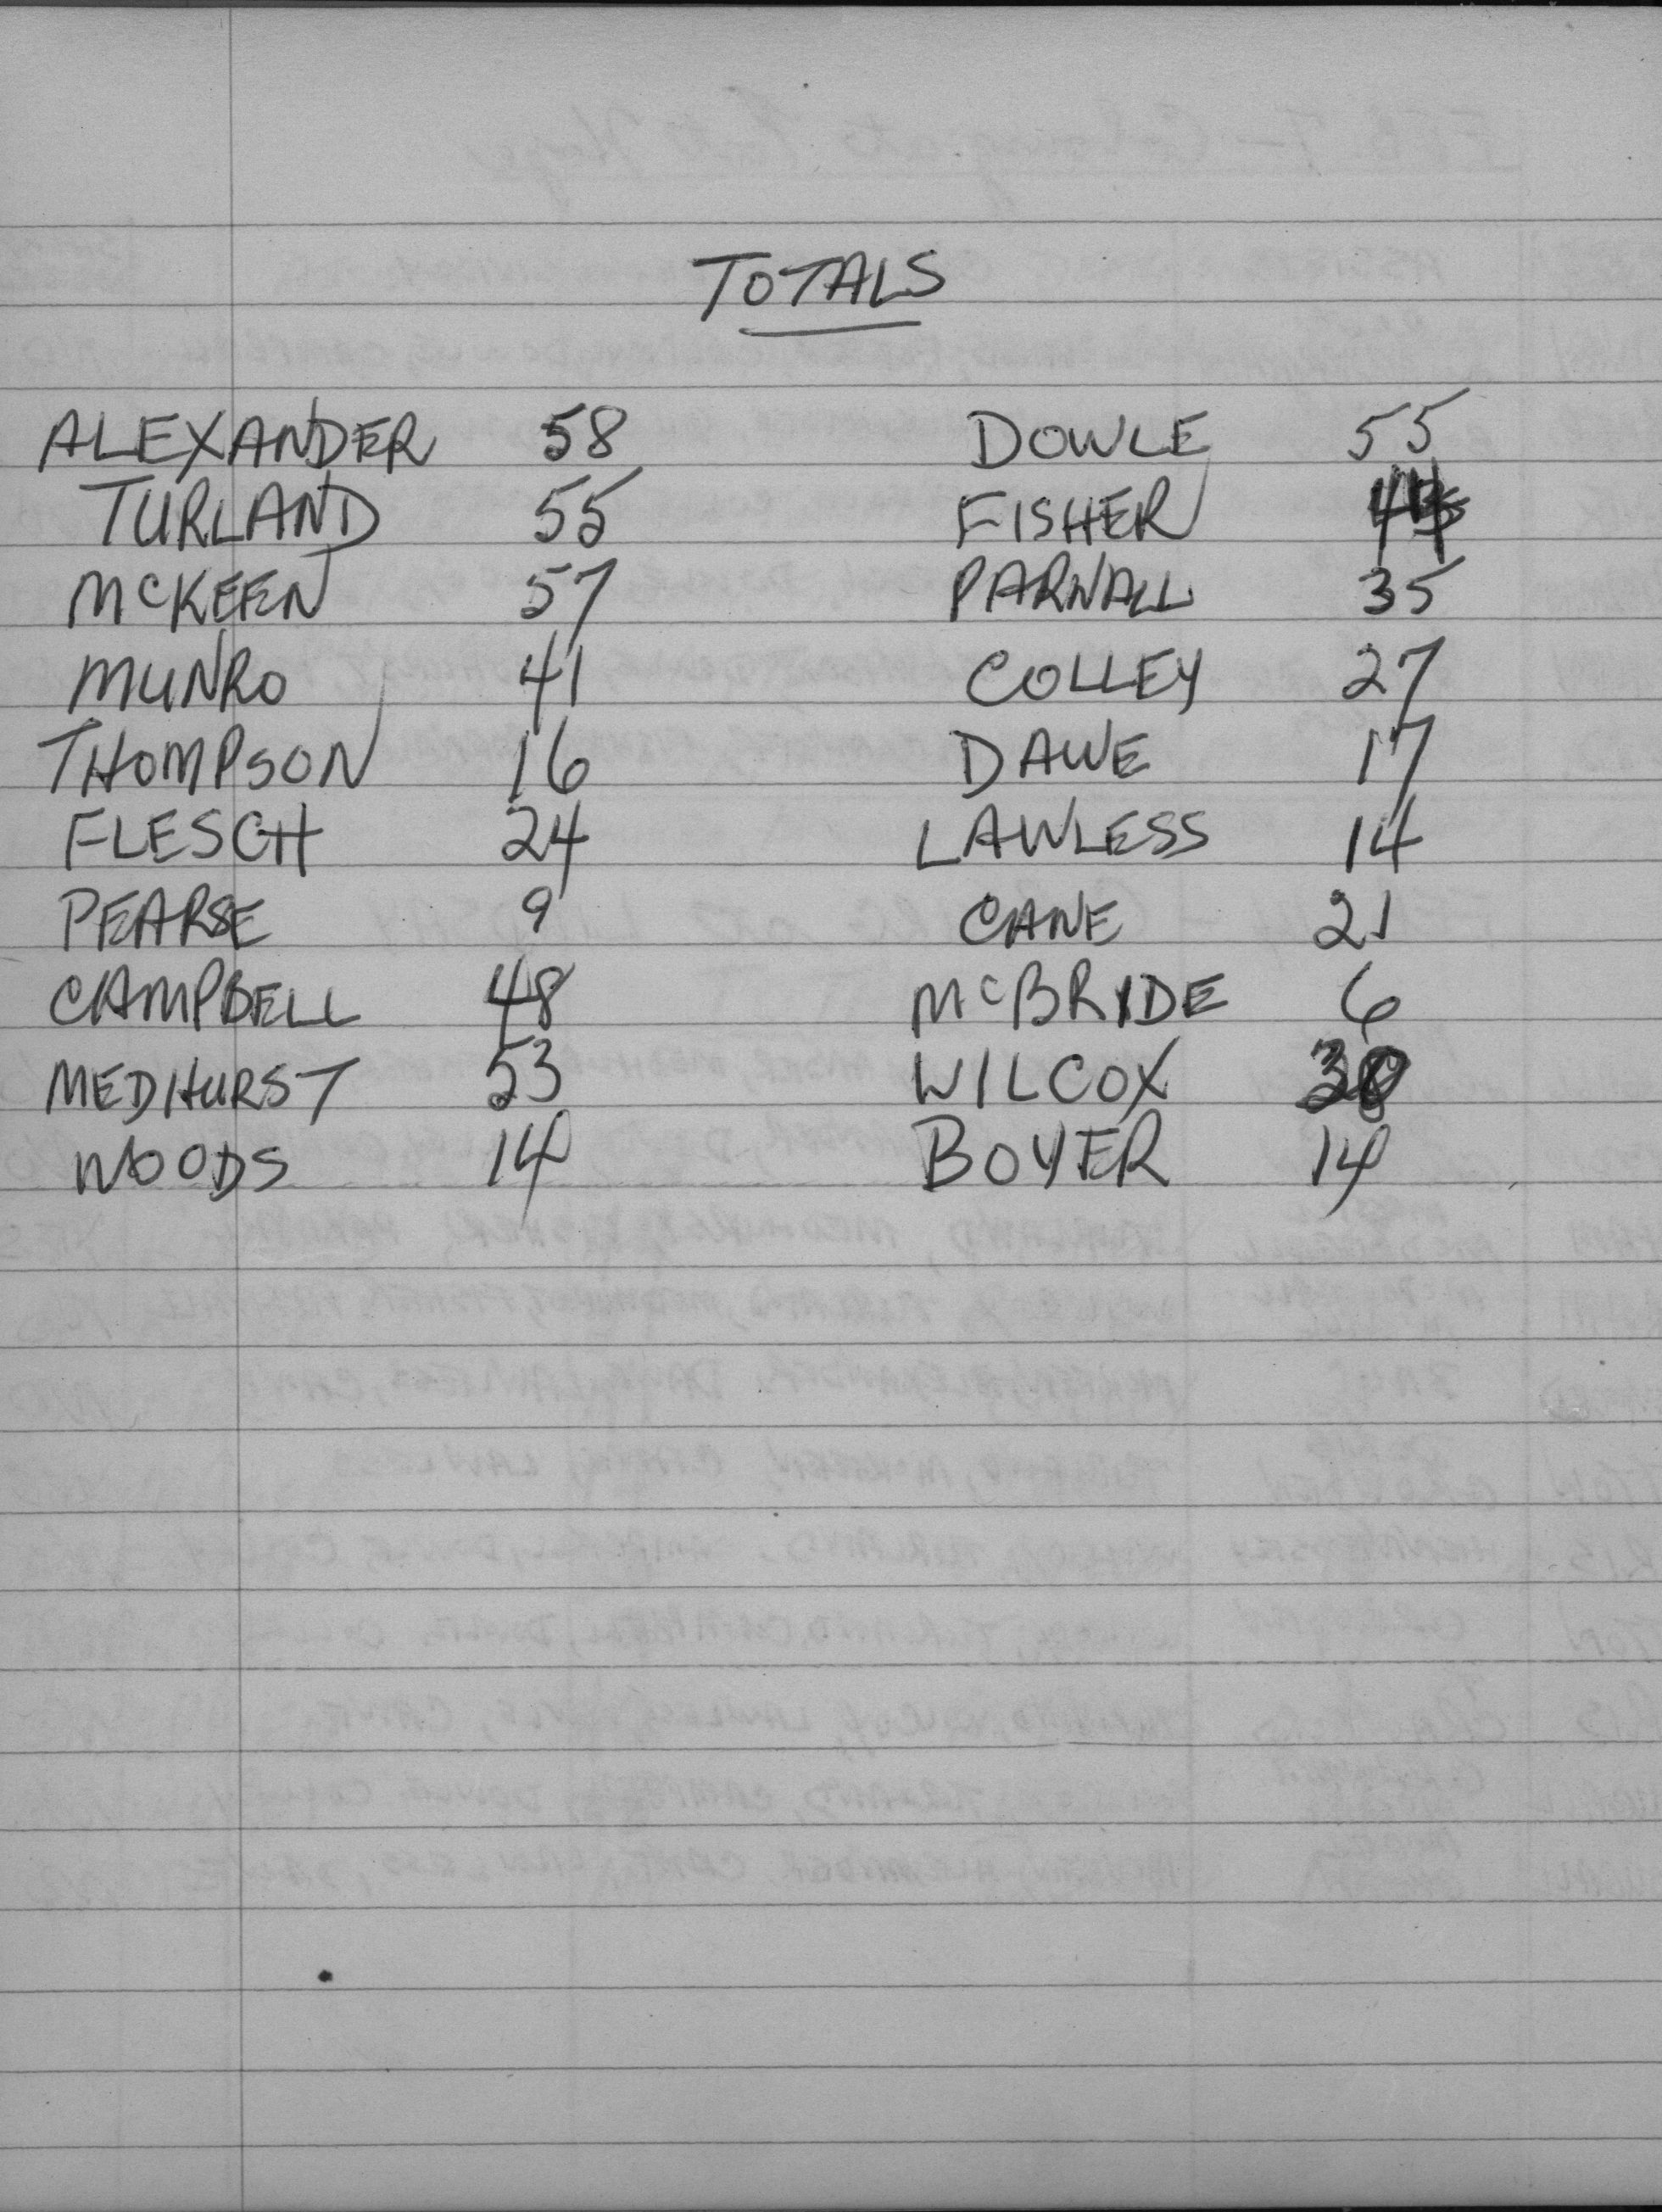 TOTALS
ALEXANDER 58 DOWLE 55
TURLAND 55 FISHER 44
MCKEEN 57 PARNALL 35
MUNRO 41 COLLEY 27
THOMPSON 16 DAWE 17
FLESCH 24 LAWLESS 14
PEARSE 9 CANE 21
CAMPBELL 48 MCBRIDE 6
MEDHURST 53 WILCOX
WOODS 14 BOYER 14